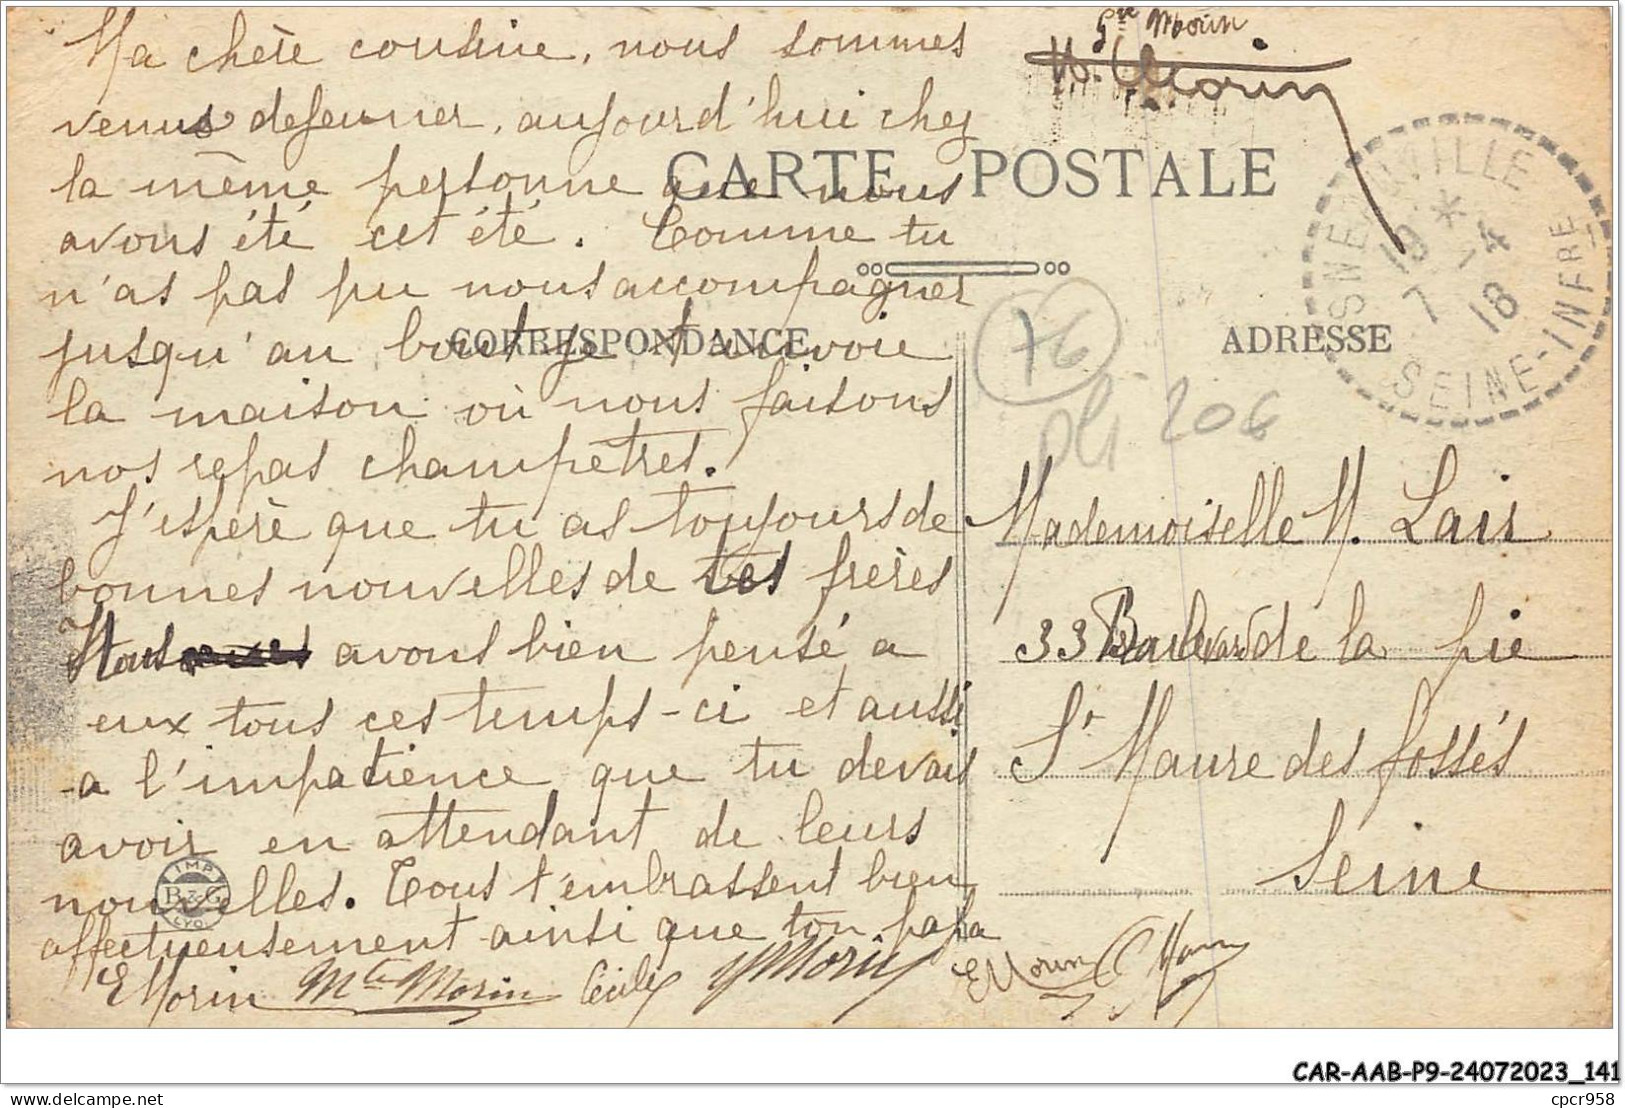 Ma chère cousine, nous sommes
venus dejeuner, aujourd'hui chez
la même personne que nous
avons été cet été. Comme tu
n'as pas pu nous accompagner
jusqu'au bout je t'envoie
la maison où nous faisons
nos repas champêtres.
J'espère que tu as toujours de
bonnes nouvelles de tes frères
Nous avons bien pensé a
eux tous ces temps-ci et aussi
a l'impatience que tu devais
avoir en attendant de leurs
nouvelles. Tous t'embrassent bien
affectueusement ainsi que ton papa
E Morin Mte Morin Cécile Morin E Morin
Morin
Morin
CARTE POSTALE
CORRESPONDANCE
ADRESSE
19 * 7 -4 18
SEINE-INFRE
76
pli 206
Mademoiselle M. Lair
33 Boulevard de la pie
St Maure des fossés
Seine
IMP
B & G
LYON
CAR-AAB-P9-24072023_141
cpcr958